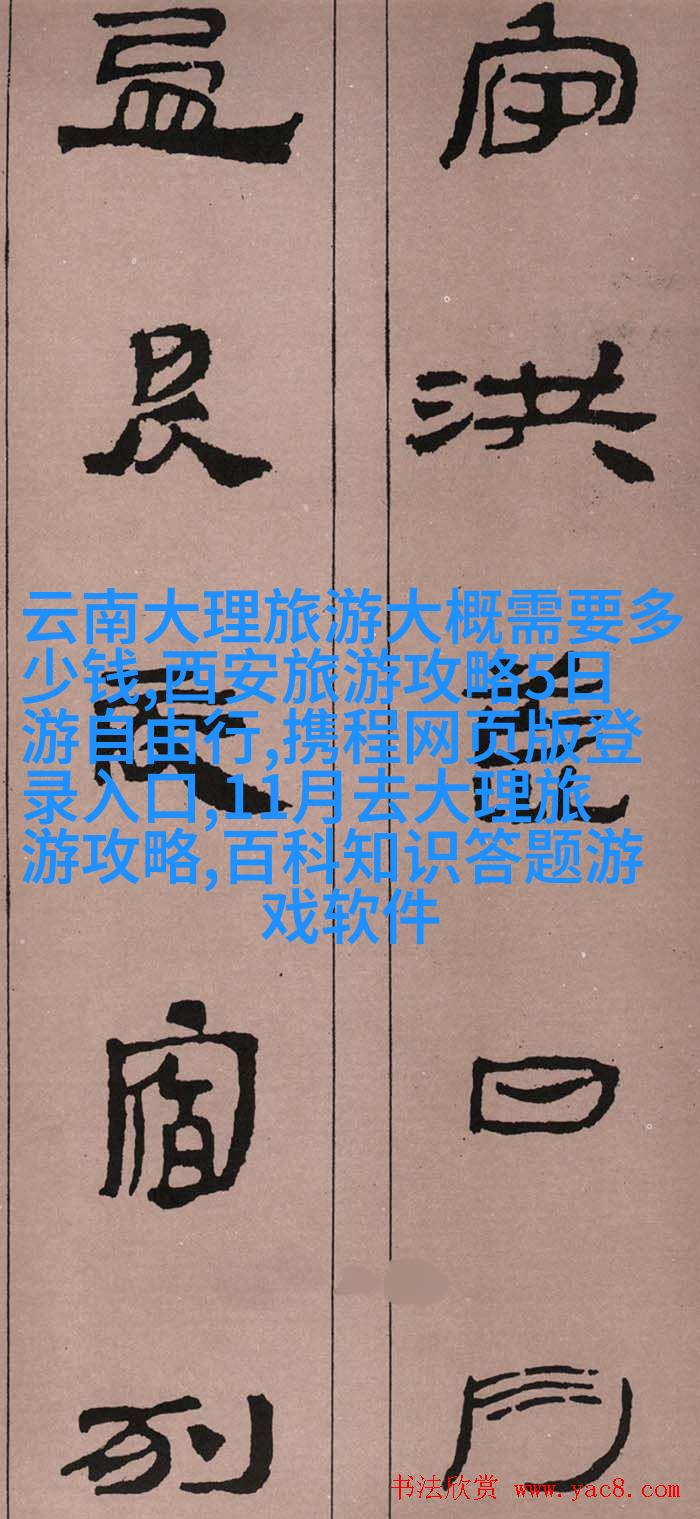 宙洪荒日月
盈昃辰宿列
云南大理旅游大概需要多
少钱,西安旅游攻略5日
游自由行,携程网页版登
录入口,11月去大理旅
游攻略,百科知识答题游
戏软件
书法欣赏 www.yac8.com